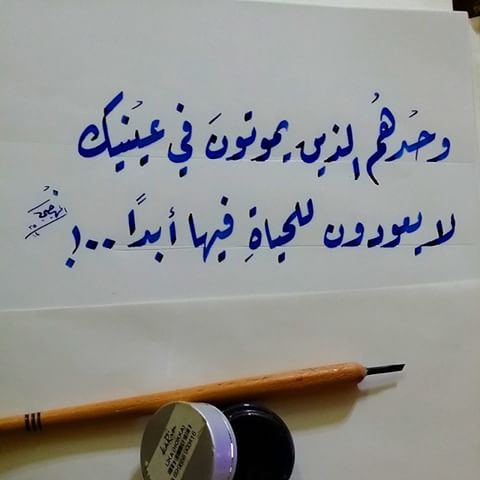 وحْدهُم الذين يموتونَ في عينيك
لا يعودون للحياةِ فيها أبدًا ..!